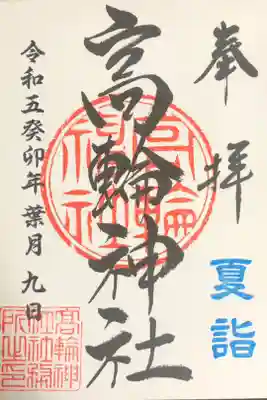 奉拝
夏詣
高輪神社
令和五癸卯年 葉月 九日
高輪神社
高輪神
社社務
所之印